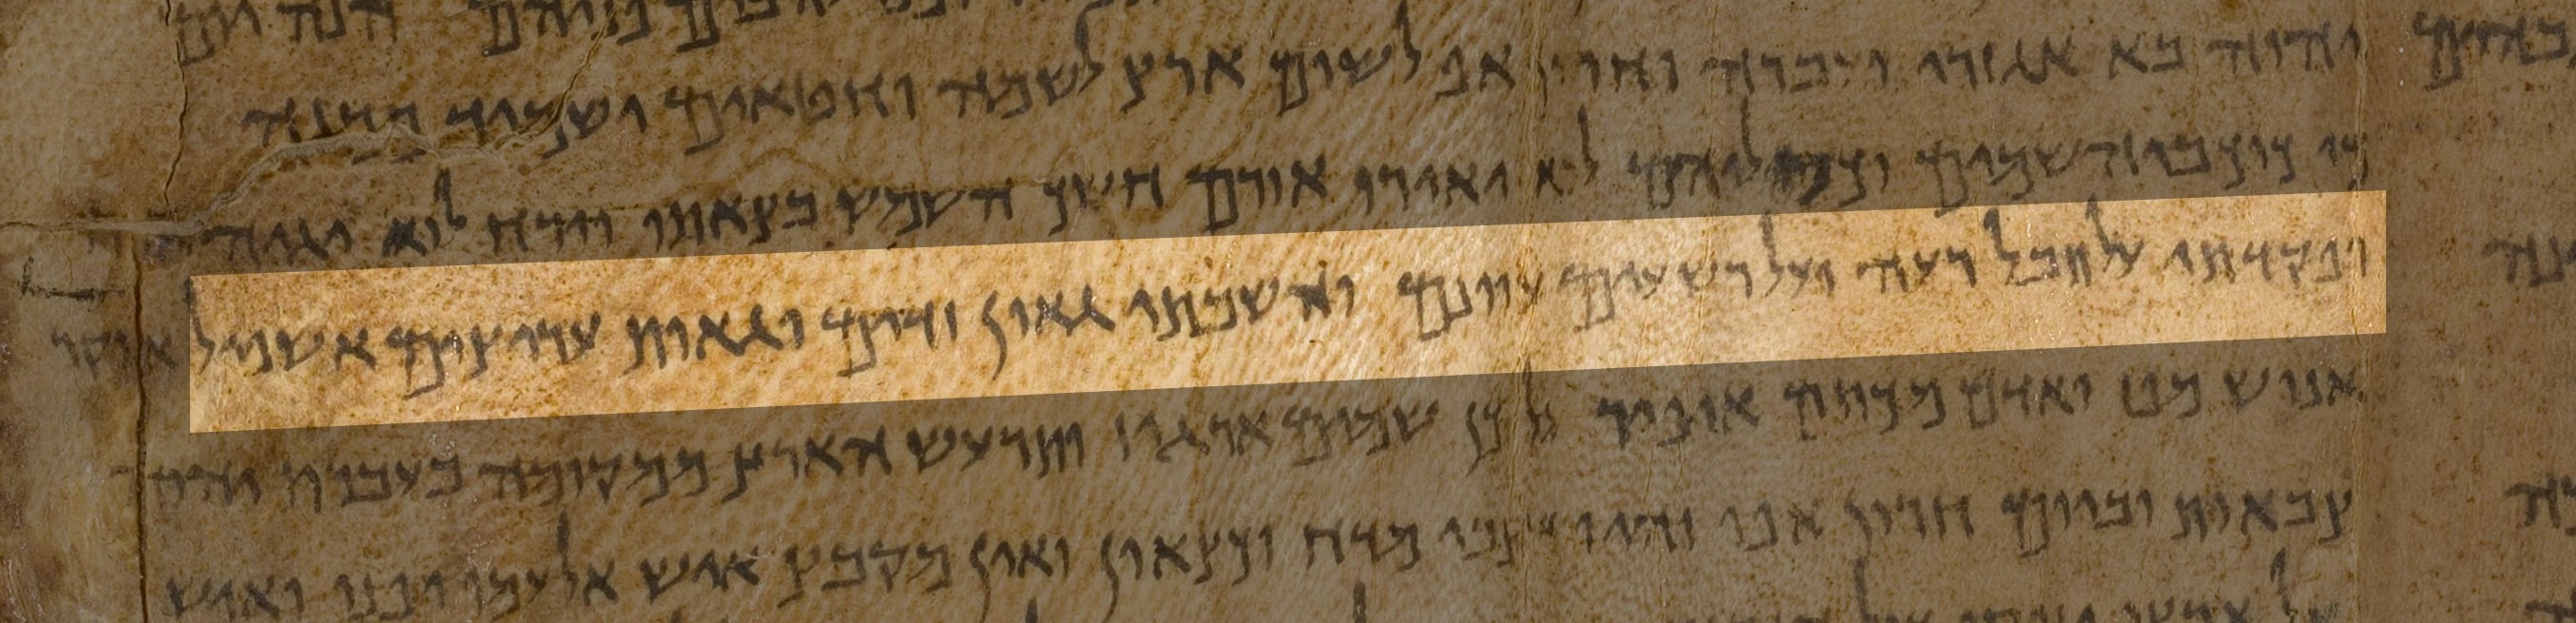 פניהם הנה יום
יהוה בא אגזרי ועברה וחרון אף לשום ארץ לשמה וחטאים ישמיד ממנה
כי כוכבי השמים וכסיליהם לא יאירו אורם חשך השמש בצאתו וירח לוא יגיה
ופקדתי על תבל רעה ועל רשעים עוונם והשבתי גאון זדים וגאות עריצים אשפיל אוקר
אנוש מפז ואדם מכתם אופיר על כן שמים ארגיז ותרעש הארץ ממקומה בעברת יהוה
צבאות וביום חרון אפו והיו כצבי מדח וכצאון ואין מקבץ איש אל עמו יפנו ואיש
אל ארצו